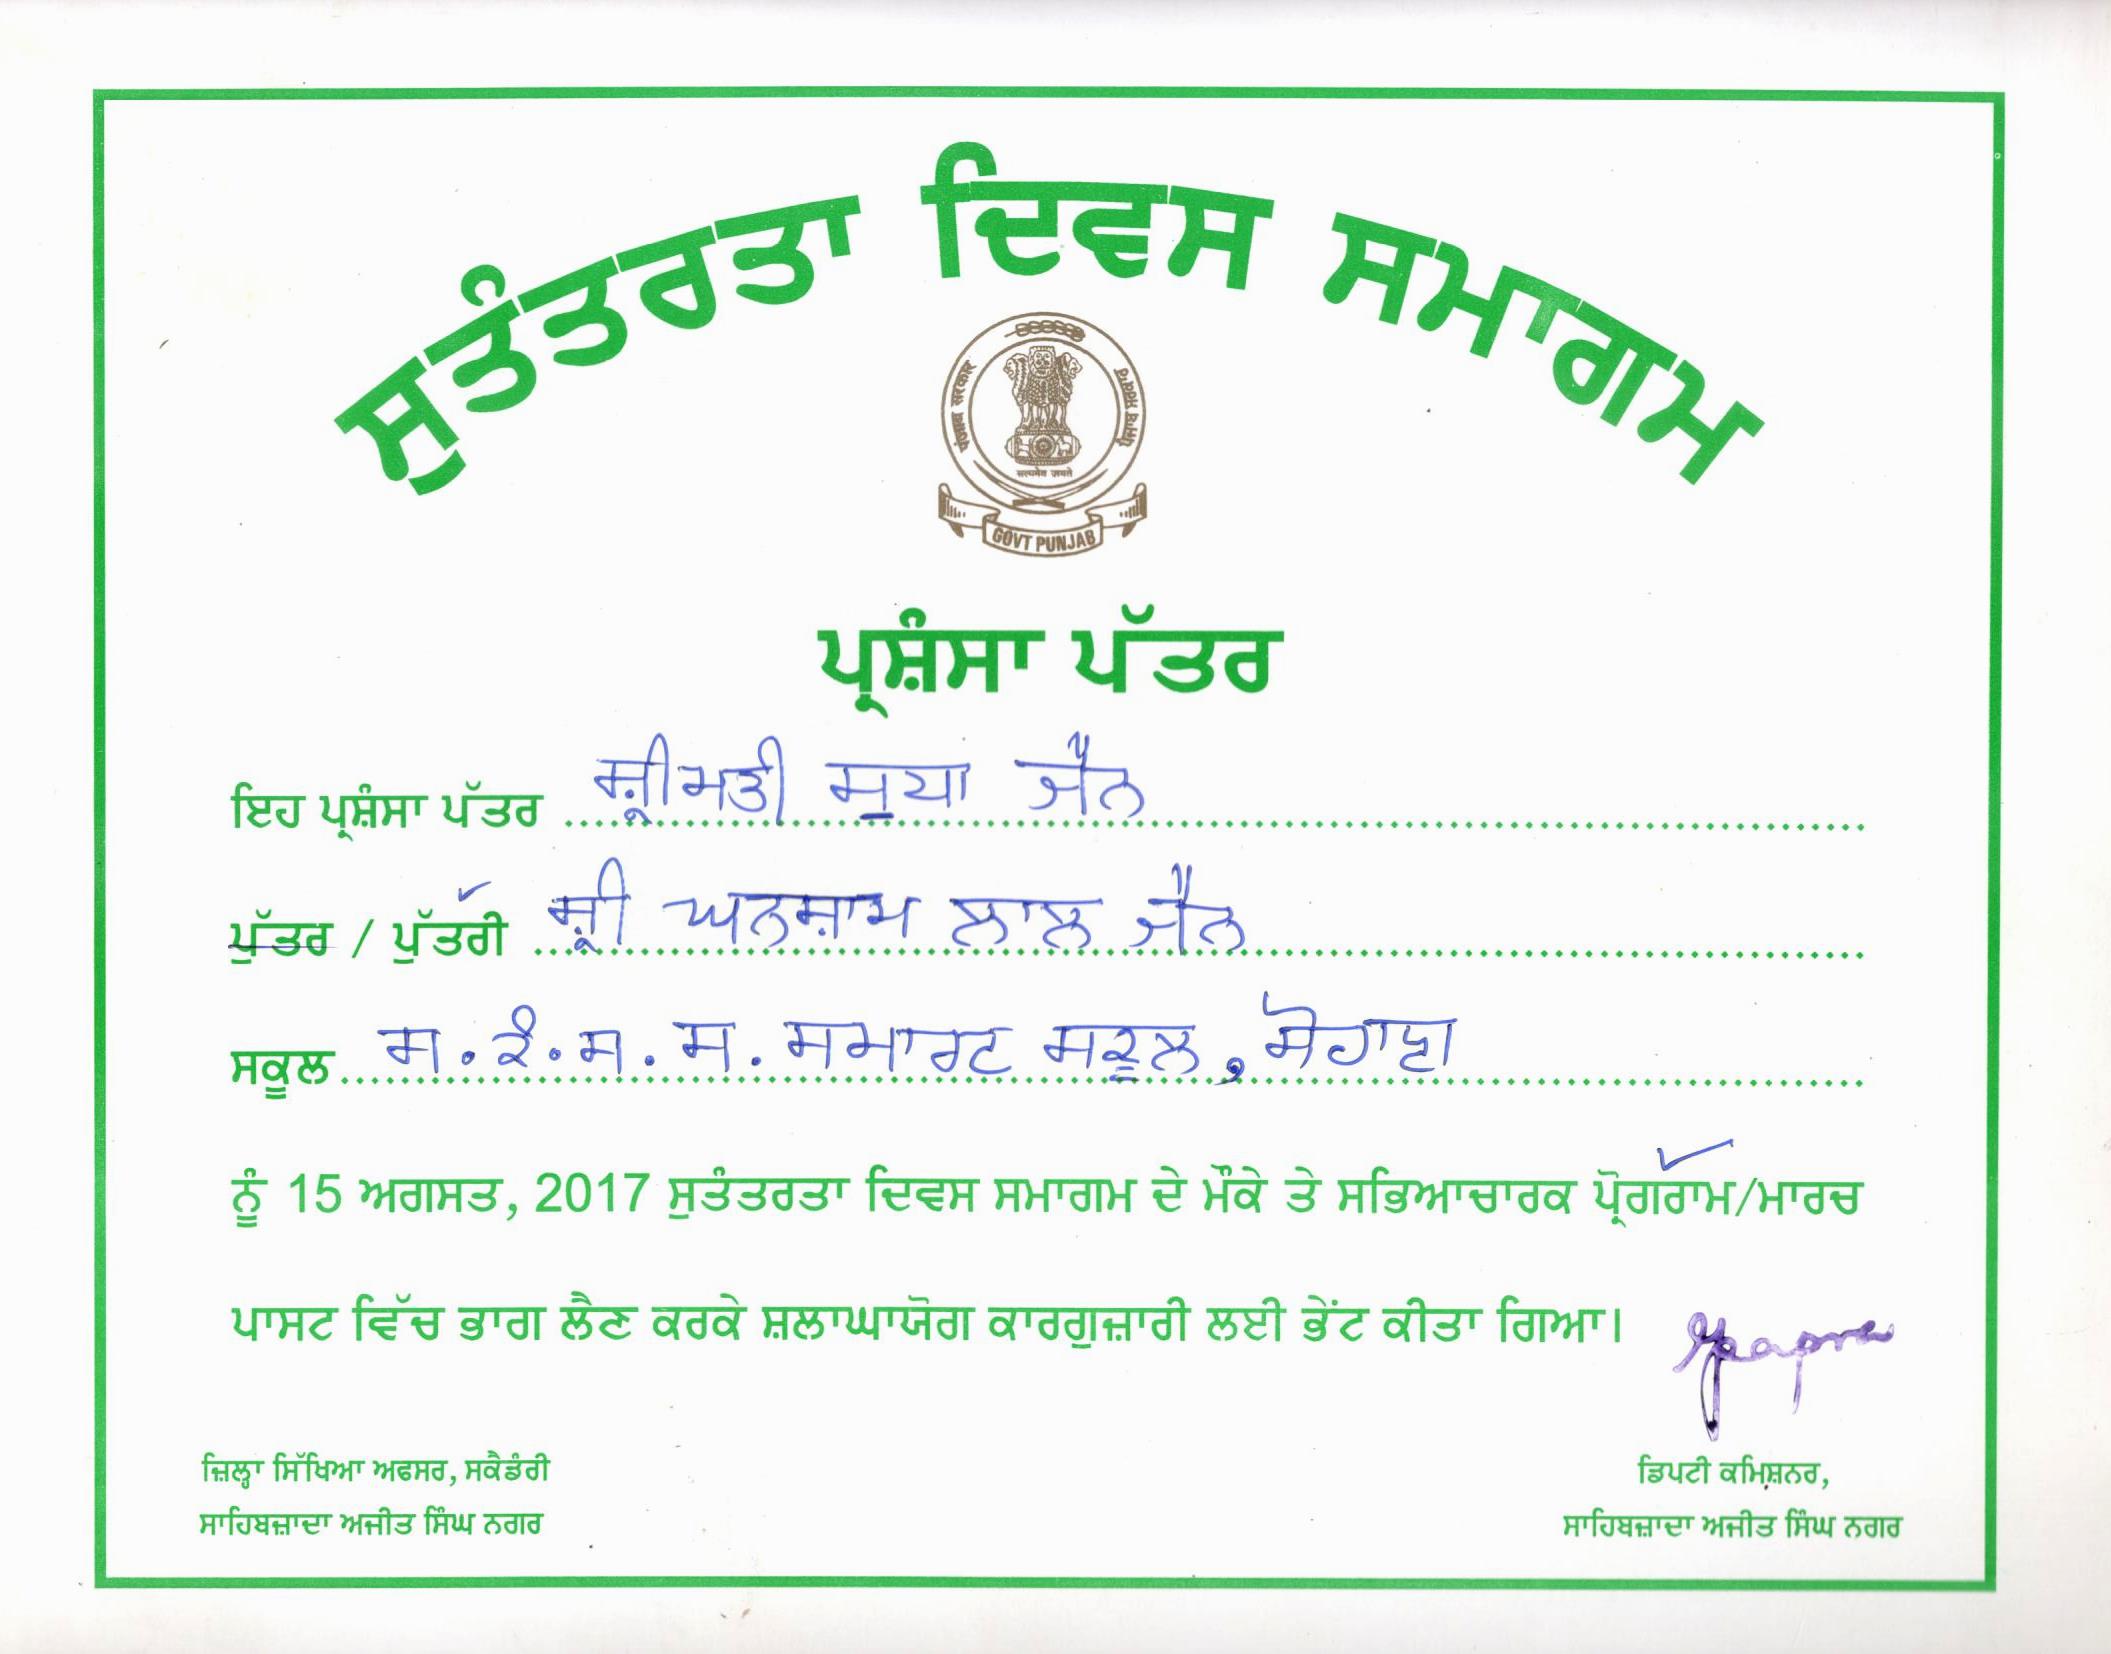 ਸੁਤੰਤਰਤਾ ਦਿਵਸ ਸਮਾਗਮ
पंजाब सरकार
ਪੰਜਾਬ ਸਰਕਾਰ
सत्यमेव जयते
GOVT PUNJAB
ਪ੍ਰਸ਼ੰਸਾ ਪੱਤਰ
ਇਹ ਪ੍ਰਸ਼ੰਸਾ ਪੱਤਰ ਸ਼੍ਰੀਮਤੀ ਸੁਧਾ ਜੈਨ
ਪੁੱਤਰ / ਪੁੱਤਰੀ ਸ਼੍ਰੀ ਘਨਸ਼ਾਮ ਲਾਲ ਜੈਨ
ਸਕੂਲ ਸ.ਕੰ.ਸ.ਸ. ਸਮਾਰਟ ਸਕੂਲ, ਸੋਹਾਣਾ
ਨੂੰ 15 ਅਗਸਤ, 2017 ਸੁਤੰਤਰਤਾ ਦਿਵਸ ਸਮਾਗਮ ਦੇ ਮੌਕੇ ਤੇ ਸਭਿਆਚਾਰਕ ਪ੍ਰੋਗਰਾਮ/ਮਾਰਚ
ਪਾਸਟ ਵਿੱਚ ਭਾਗ ਲੈਣ ਕਰਕੇ ਸ਼ਲਾਘਾਯੋਗ ਕਾਰਗੁਜ਼ਾਰੀ ਲਈ ਭੇਂਟ ਕੀਤਾ ਗਿਆ।
ਜ਼ਿਲ੍ਹਾ ਸਿੱਖਿਆ ਅਫਸਰ, ਸਕੈਡੰਰੀ
ਸਾਹਿਬਜ਼ਾਦਾ ਅਜੀਤ ਸਿੰਘ ਨਗਰ
ਡਿਪਟੀ ਕਮਿਸ਼ਨਰ,
ਸਾਹਿਬਜ਼ਾਦਾ ਅਜੀਤ ਸਿੰਘ ਨਗਰ